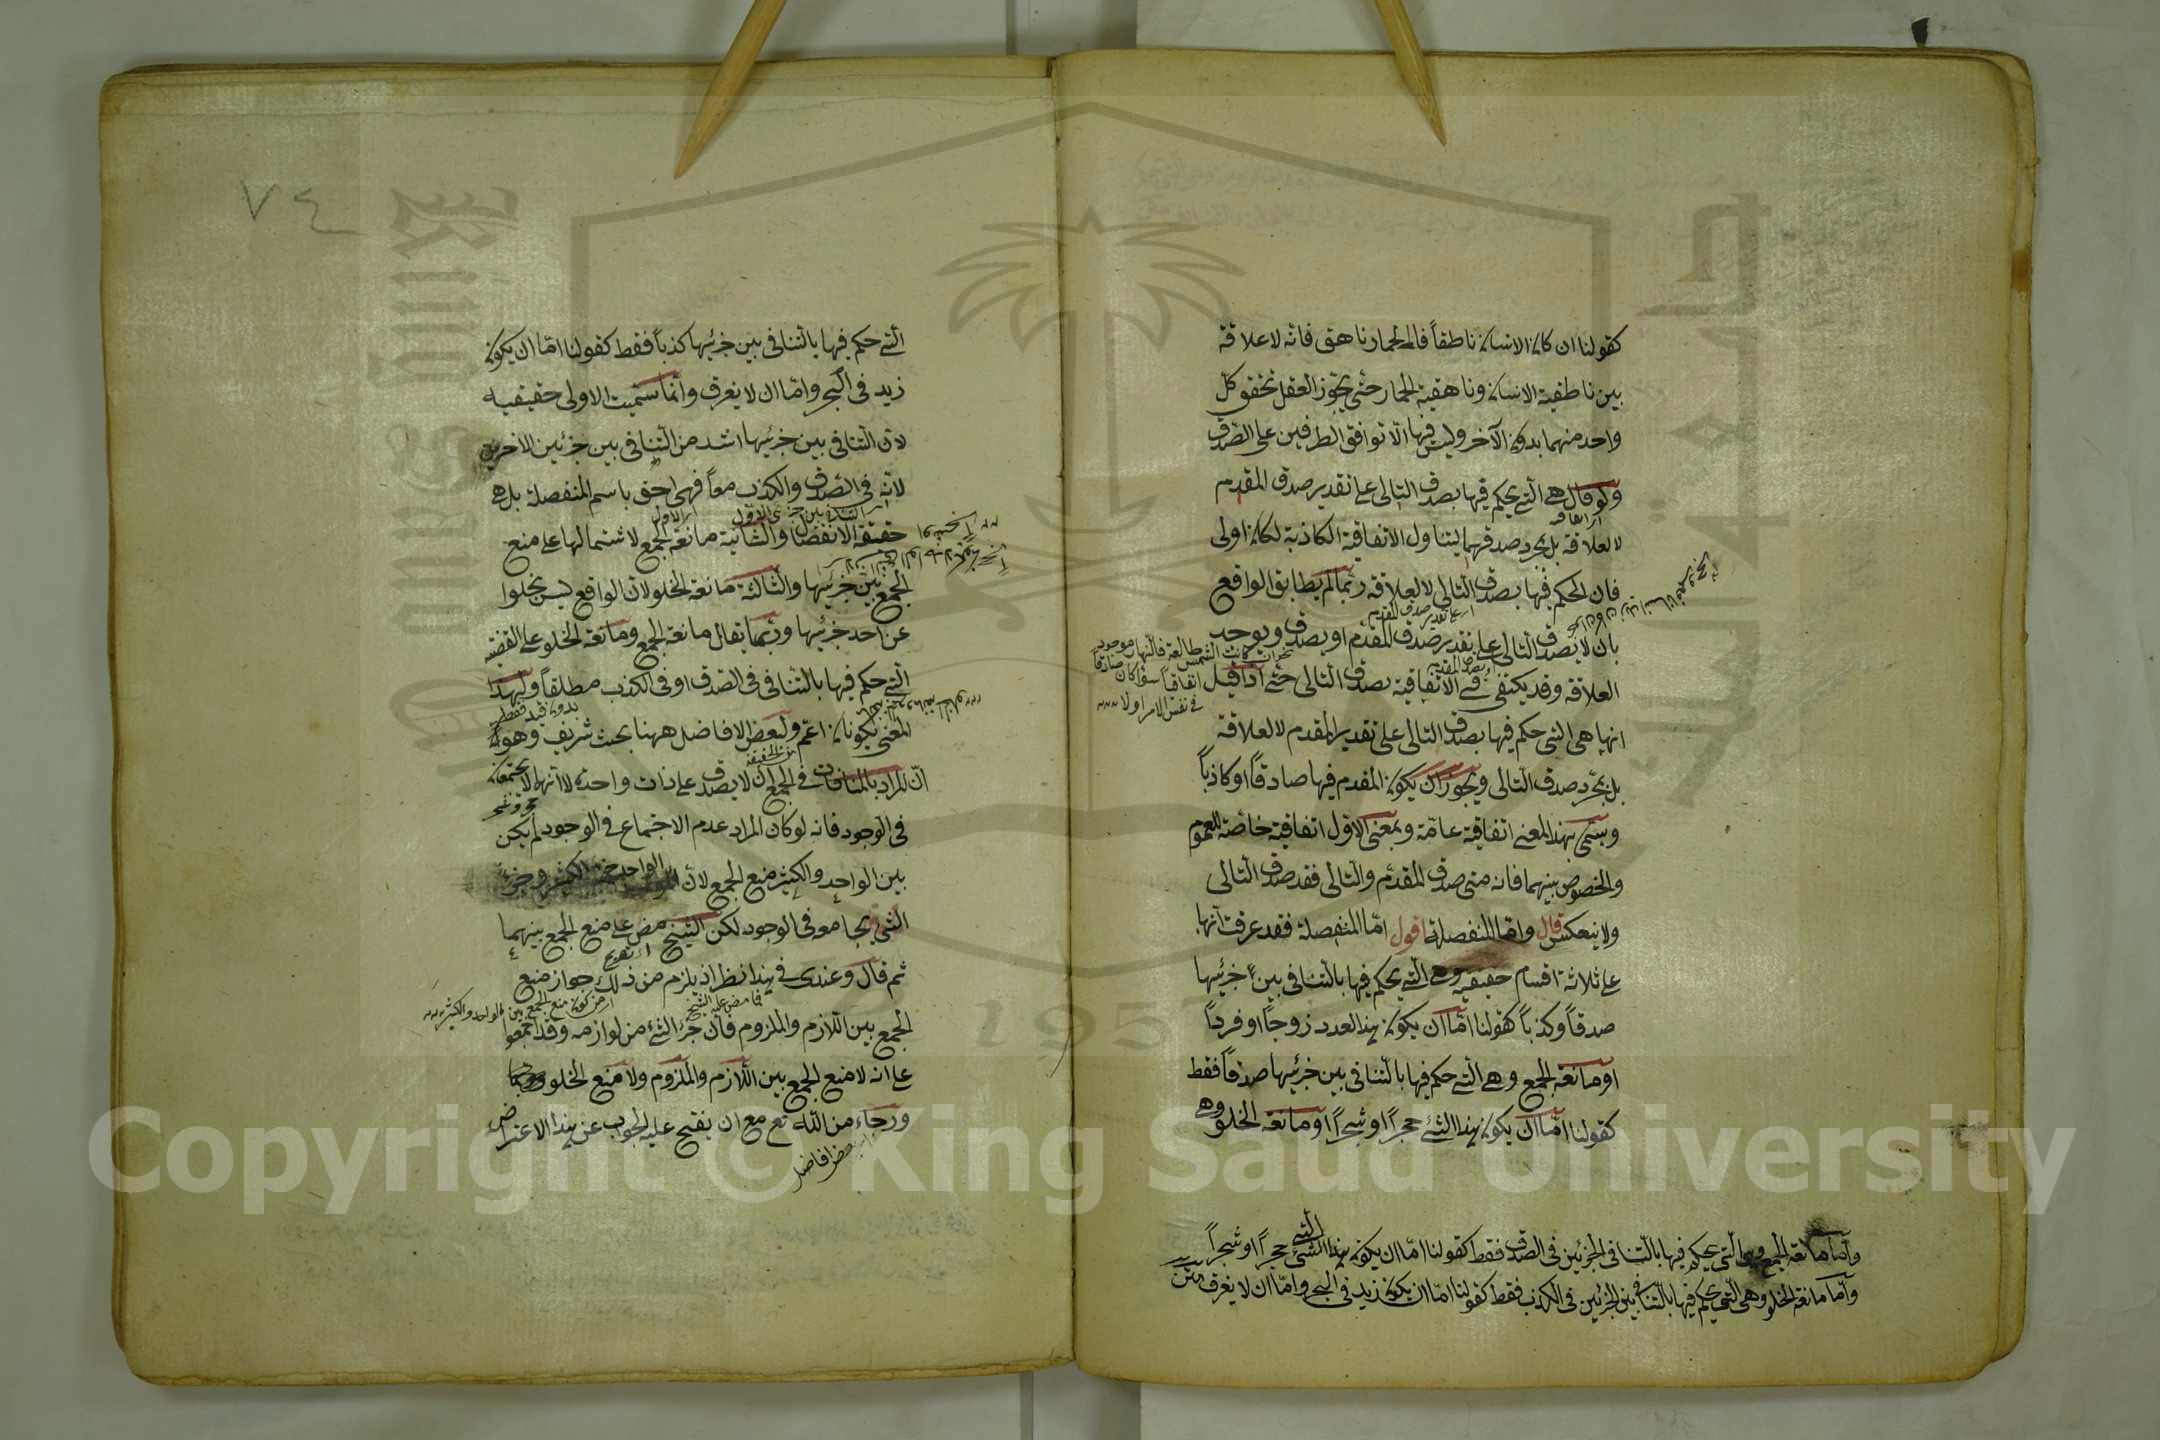 كقولنا ان كان الانسان ناطقاً فالحمار ناهق فانه لا علاقة
بين ناطقية الانسان وناهقية الحمار حتى يجوّز العقل تحقق كلّ
واحد منهما بدون الآخر وليس فيها الّا توافق الطرفين على الصّدق
ولو قال هي الّتي يحكم فيها بصدق التالى على تقدير صدق المقدم
لا لعلاقة بل بمجرد صدقهما ليتناول الاتفاقية الكاذبة لكان اولى
فان الحكم فيها بصدق التّالى لا لعلاقة ربّما لم يطابق الواقع
بان لا يصدق التالى على تقدير صدق المقدم او يصدق ويوجد
العلاقة وقد يكتفى فى الاتّفاقية بصدق التالى حتى
انها هى التى حكم فيها بصدق التالى على تقدير المقدم لا لعلاقة
بل بمجّرد صدق التّالى ويجوز ان يكون المقدم فيها صادقاً او كاذباً
ويسمّى بهذا المعنى اتفاقيّة عامّة وبمعنى الاوّل اتفاقية خاصّة للعموم
والخصوص بينهما فانه متى صدق المقدّم والتّالى فقد صدق التّالى
ولا ينعكس قال وامّا المنفصلة اقول امّا المنفصلة فقد عرفت انّها
على ثلاثة اقسام حقيقيه وهى الّتى يحكم فيها بالتنافى بين جزئيها
صدقاً وكذباً كقولنا امّا ان يكون هذا العدد زوجاً او فرداً
او مانعة الجمع وهى الّتى حكم فيها بالتنافى بين جزئيها صدقاً فقط
كقولنا امّا ان يكون هذا الشئ حجراً او شجراً او مانعة الخلو وهى
وامّا مانعة الجمع وهى الّتى يحكم فيها بالتنافى الجزئين فى الصدق فقط كقولنا امّا ان يكون هذا الشئ حجراً او شجراً
وامّا مانعة الخلو وهى الّتى يحكم فيها بالتّنافى بين الجزئين فى الكذب فقط كقولنا امّا ان يكون زيد فى البحر وامّا ان لا يغرق متن
٧٤
الّتى حكم فيها بالتّنافى بين جزئيها كذباً فقط كقولنا امّا ان يكون
زيد فى البحر وامّا ان لا يغرق وانّما سمّيت الاولى حقيقيه
لان التّنافى بين جزئيها اشد من التّنافى بين جزئين الاخرين
لانه فى الصّدق والكذب معاً فهى احق باسم المنفصلة بل هى
حقيقة الانفصال والثانية مانعة الجمع لاشتمالها على منع
الجمع بين جزئيها والثّالثة مانعة الخلو لان الواقع ليس يخلوا
عن احد جزئيها وربّما يقال مانعة الجمع ومانعة الخلو على القضية
الّتى حكم فيها بالتّنافى فى الصّدق او فى الكذب مطلقاً وبهذا
المعنى يكونان اعمّ ولبعض الافاضل ههنا بحث شريف وهو
انّ المراد بالمنافات فى الجمع ان لا يصدق على ذات واحدة لا انهما لا يجتمعان
فى الوجود فانه لو كان المراد عدم الاجتماع فى الوجود لم يكن
بين الواحد والكثير منع الجمع لانّ الواحد جزء الكثير وجزء
الشئ يجامعه فى الوجود لكن الشيخ نص على منع الجمع بينهما
ثم قال وعندى فى هذا نظر اذ يلزم من ذلك جواز منع
الجمع بين اللازم والملزوم فان جزء الشئ من لوازمه وقد اجمعوا
على انه لا منع الجمع بين اللّازم والملزوم ولا منع الخلو
ورجاء من اللّه تع مع ان يفتح عليه الجواب عن هذا الاعتراض
Copyright © King Saud University